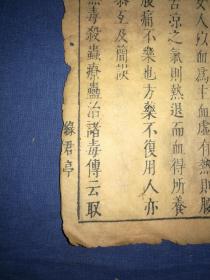 女人以血爲主血虛有熱則腰
苦涼之氣則熱退而血得所養
腹痛不樂也方藥不復用人亦
恭互及簡誤
無毒殺蟲療蠱治諸毒傳云取
綠君亭